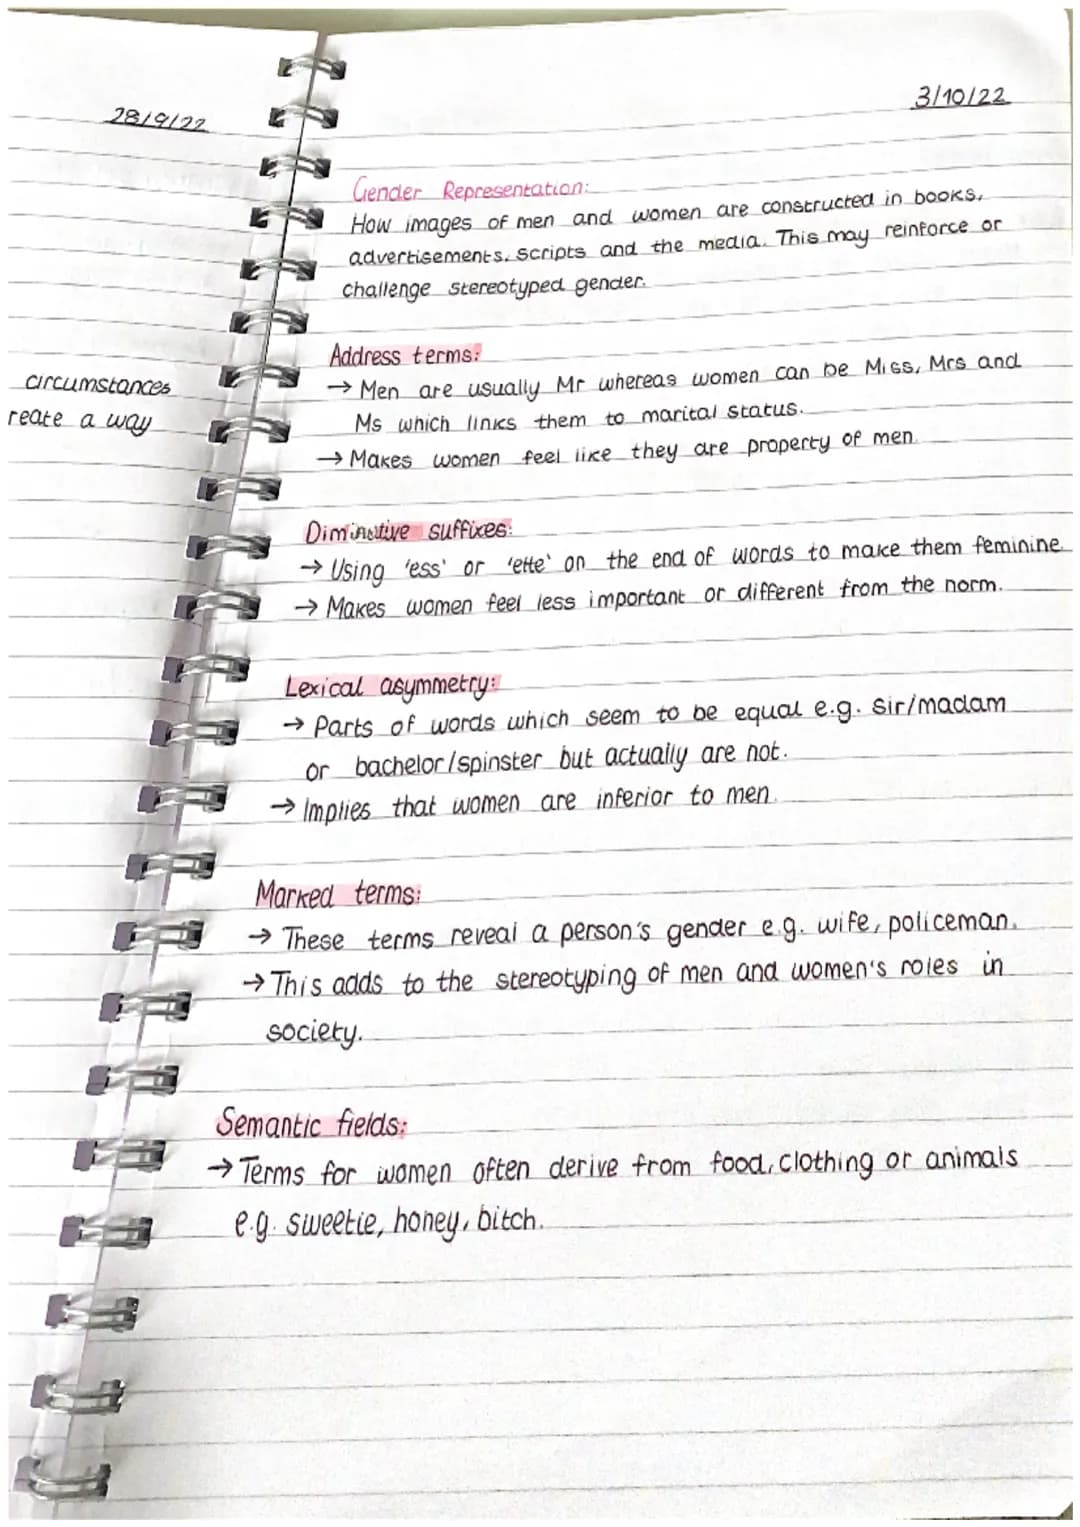 28/9/22
circumstances
reate a way
3/10/22
Gender Representation:
How images of men and women are constructed in books,
advertisements, scripts and the media. This may reinforce or
challenge stereotyped gender.
Address terms:
→ Men are usually Mr whereas women can be Miss, Mrs and
Ms which links them to marital status.
→ Makes women feel like they are property of men.
Diminutive suffixes:
→ Using 'ess' or 'ette' on the end of words to make them feminine.
→ Makes women feel less important or different from the norm.
Lexical asymmetry:
→ Parts of words which seem to be equal e.g. sir/madam
or bachelor/spinster but actually are not.
→ Implies that women are inferior to men.
Marked terms:
→ These terms reveal a person's gender e.g. wife, policeman.
→ This adds to the stereotyping of men and women's roles in
society.
Semantic fields:
→ Terms for women often derive from food, clothing or animals
e.g. sweetie, honey, bitch.